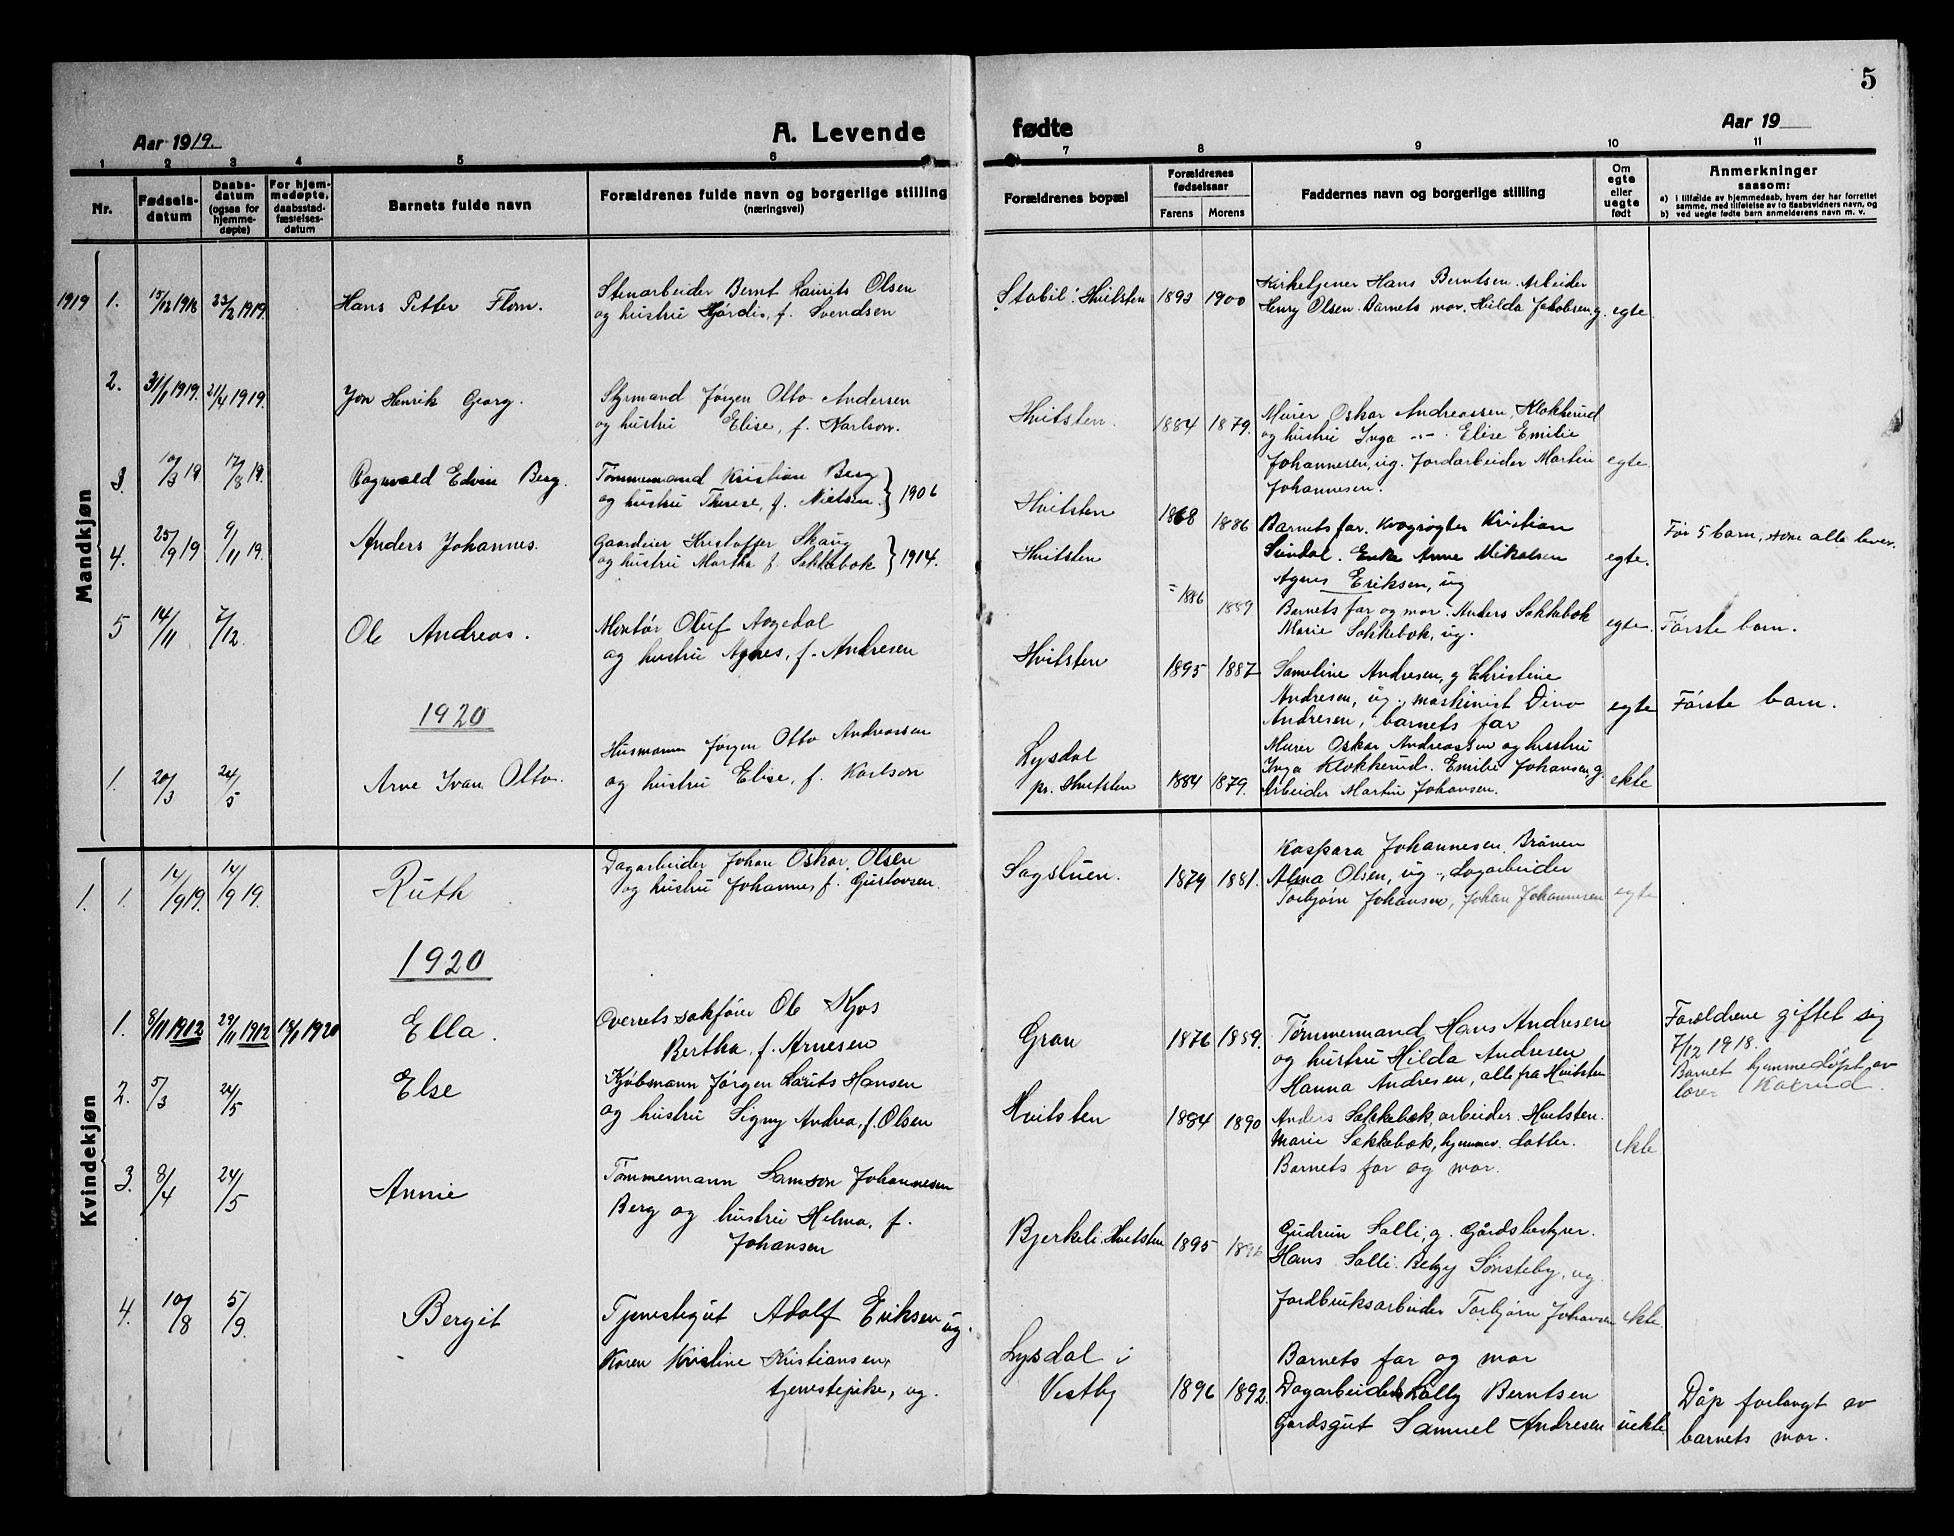 5
Aar 1919.
A. Levende
fødte
Aar 19
1 2 3 4 5 6 7 8 9 10 11
Nr.
Fødsels-
datum
Daabs-
datum
(ogsaa for
hjemme-
døpte)
For hjem-
medøpte,
daabsstad-
fæstelses-
datum
Barnets fulde navn
Forældrenes fulde navn og borgerlige stilling
(næringsvei)
Forældrenes bopæl
Forældrenes
fødselsaar
Farens Morens
Faddernes navn og borgerlige stilling
Om
egte
eller
uegte
født
Anmerkninger
saasom:
a) i tilfælde av hjemmedaab, hvem der har forrettet
samme, med tilføielse av to daabsvidners navn, og
b) ved uegte fødte barn anmelderens navn m. v.
Mandkjøn
1919 1. 15/12 1918 23/2 1919. Hans Petter Flom.
Stenarbeider Bernt Laurits Olsen
og hustru Hjørdis, f. Svendsen
Stabil: Hvitsten 1893 1900
Kirketjener Hans Berntsen. Arbeider
Henry Olsen. Barnets mor. Hilda Jakobsen, g. egte.
2. 31/1 1919. 21/4 1919. Jon Henrik Georg.
Styrmand Jørgen Otto Andersen
og hustru Elise, f. Karlson.
Hvitsten. 1884 1879.
Murer Oskar Andreassen, Klokkerud
og hustru Inga -"-. Elise Emilie
Johannesen, ug. Jordarbeider Martin egte.
Johannesen.
3. 10/3 19 17/8 19. Ragnvald Edvin Berg.
Tømmermand Kristian Berg
og hustru Therese, f. Nielsen. } 1906
Hvitsten 1868 1886
Barnets far. Røgter Kristian
Sundal. Enke Anne Mikalsen egte.
Agnes Eriksen, ug
Før 5 barn, som alle lever.
4. 25/9 19 9/11 19. Anders Johannes.
Gaardeier Kristoffer Skaug
og hustru Martha f. Sækkebæk } 1914.
Hvitsten 1886 1889
Barnets far og mor. Anders Sækkebæk egte.
Marie Sækkebæk, ug.
Første barn.
5 14/11 7/12. Ole Andreas.
Montør Oluf Aagedal
og hustru Agnes, f. Andresen
Hvitsten 1895 1887
Sameline Andresen, g Christine
Andresen, ug., maskinist egte
Andresen, barnets far
Første barn.
1920
1. 20/3 24/5 Arne Ivan Otto.
Husmann Jørgen Otto Andreassen
og hustru Elise, f. Karlson
Lysdal
pr. Hvitsten 1884 1879.
Murer Oskar Andreassen og hustru
Inga Klokkerud. Emilie Johansen, g. ekte
Arbeider Martin Johansen.
Kvindekjøn
1. 1. 14/9 19. 14/9 19. Ruth
Dagarbeider Johan Oskar Olsen
og hustru Johanne, f. Gustavsen.
Sagstuen. 1879 1881.
Kaspara Johannesen. Braaten
Alma Olsen, ug., Dagarbeider
Torbjørn Johansen, Johan Johannesen egte
1920
1. 8/11 1912 29/11 1912 18/1 1920 Ella.
Overretssakfører Ole Kjos
Bertha, f. Arnesen
Gran 1876 1889.
Tømmermand Hans Andresen
og hustru Hilda Andresen
Hanna Andresen, alle fra Hvitsten
Forældrene giftet sig
7/12 1918.
Barnet hjemmedøpt av
lærer Kaxrud.
2. 5/3 24/5 Else
Kjøbmann Jørgen Laurits Hansen
og hustru Signy Andrea, f. Olsen
Hvitsten 1884 1890
Anders Sækkebæk, arbeider Hvitsten.
Marie Sækkebæk, hjemmev. datter.
Barnets far og mor. ekte
3. 8/4 24/5 Annie
Tømmermann Samson Johannesen
Berg og hustru Helma, f.
Johansen
Bjerkeli. Hvitsten 1895 1896
Gudrun Solli, g. Gårdsbestyrer.
Hans Solli. Betzy Sønsteby, ug
Jordbruksarbeider Torbjørn Johansen ekte.
4. 10/8 5/9. Bergit
Tjenestegut Adolf Eriksen ug.
Karen Kristine Kristiansen,
tjenestepike, ug.
Lysdal i
Vestby 1896 1892.
Barnets far og mor
Dagarbeider Lolly Berntsen
Gårdsgut Samuel Andresen uekte
Dåp forlangt av
barnets mor.